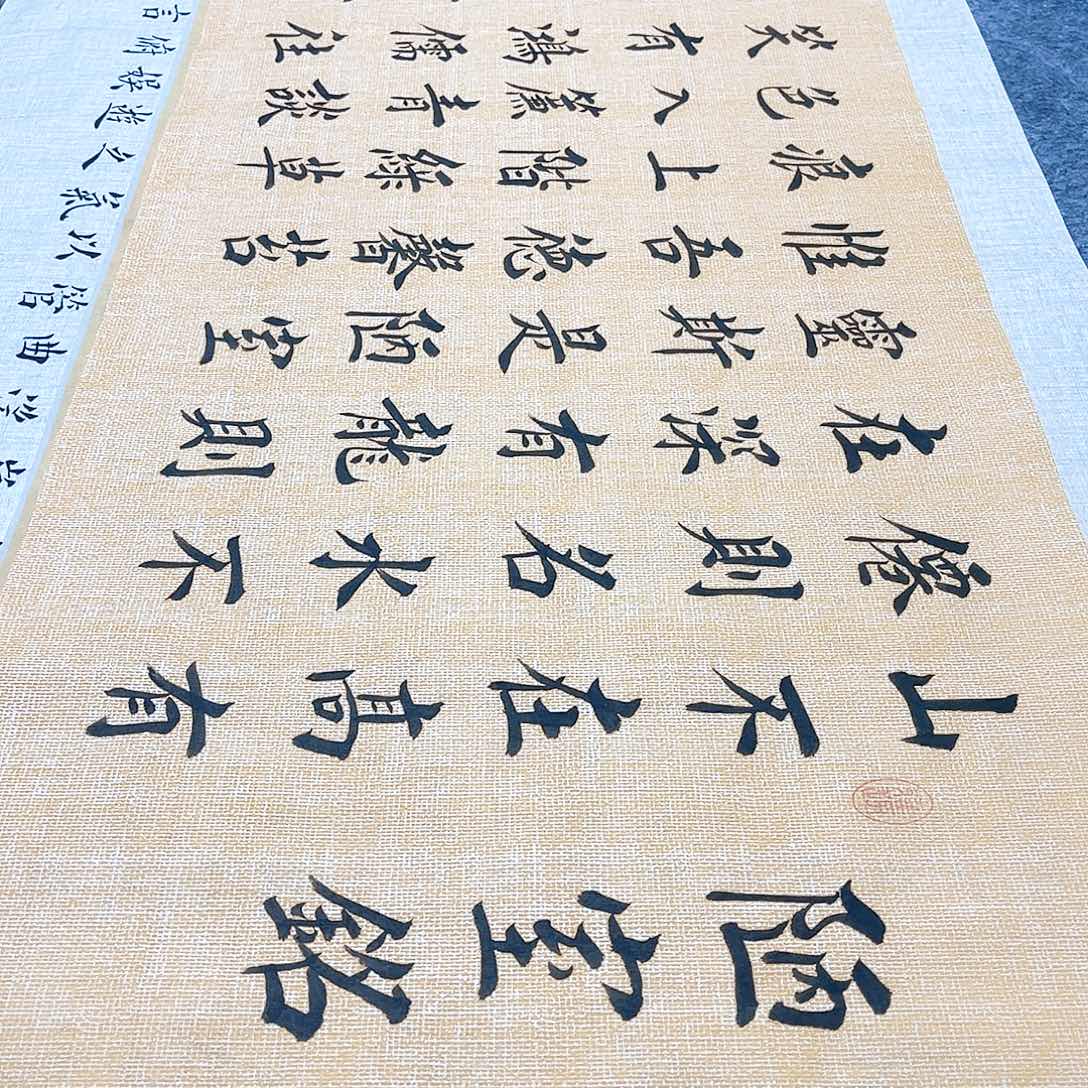 陋室銘
山不在高有
僊則名水不
在深有龍則
靈斯是陋室
惟吾德馨苔
痕上階綠草
色入簾青談
笑有鴻儒往
曲
管
以
氣
之
遊
娛
俯
言